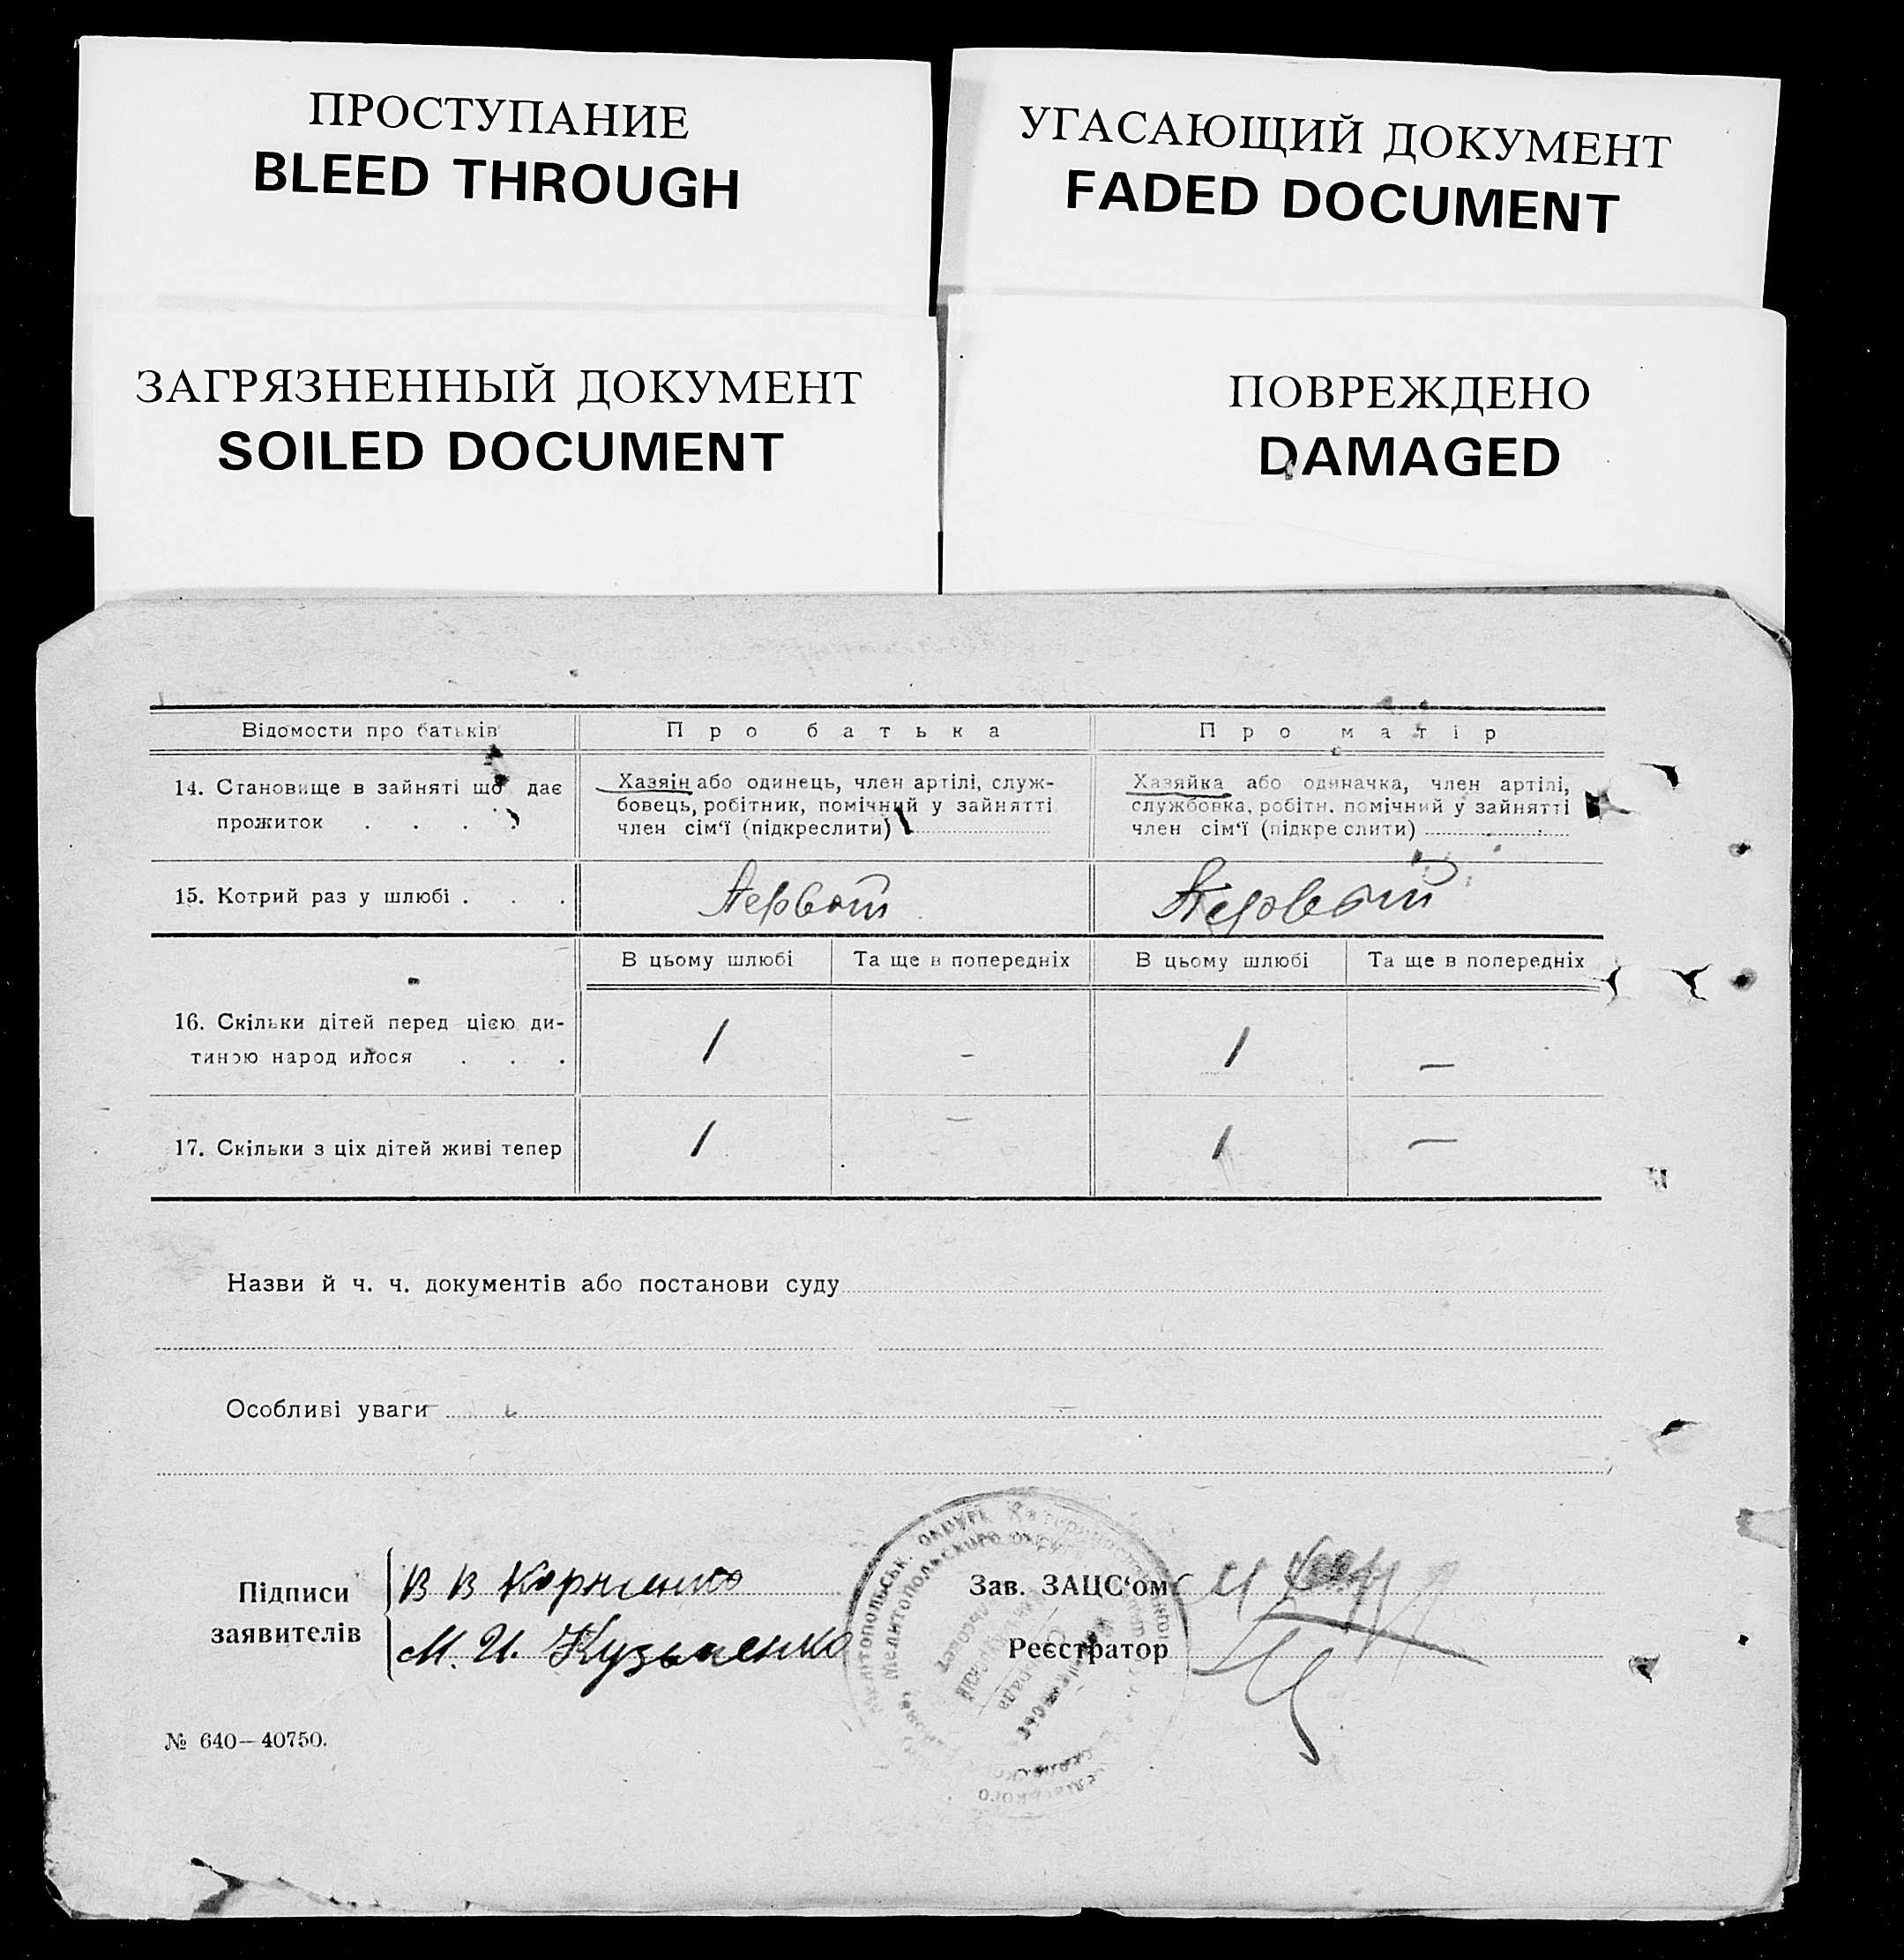 ПРОСТУПАНИЕ
BLEED THROUGH
УГАСАЮЩИЙ ДОКУМЕНТ
FADED DOCUMENT
ЗАГРЯЗНЕННЫЙ ДОКУМЕНТ
SOILED DOCUMENT
ПОВРЕЖДЕНО
DAMAGED
Відомости про батьків
Про батька
Про матір
14. Становище в зайняті що дає
прожиток . . . .
Хазяїн або одинець, член артілі, служ-
бовець, робітник, помічний у зайнятті
член сім'ї (підкреслити)
Хазяйка або одиначка, член артілі,
службовка, робітн. помічний у зайнятті
член сім'ї (підкреслити)
15. Котрий раз у шлюбі . . .
Первый
Первый
В цьому шлюбі
Та ще в попередніх
В цьому шлюбі
Та ще в попередніх
16. Скільки дітей перед цією ди-
тиною народ илося . . .
1 - 1 -
17. Скільки з ціх дітей живі тепер
1 - 1 -
Назви й ч. ч. документів або постанови суду
Особливі уваги
Підписи
заявителів
В В Корниенко
М. И. Кузьменко
Зав. ЗАЦС'ом
Реєстратор
Мелітопольськ. округи
Мелитопольского округа
№ 640—40750.